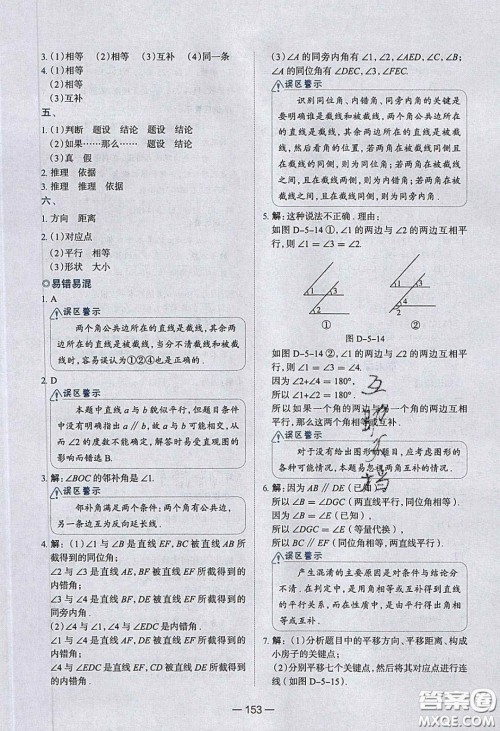 3. (1)相等 (2)相等 (3)互补 (4)同一条
4. (1)相等
(2)相等
(3)互补
五、
1. (1)判断 题设 结论 题设 结论
(2)如果……那么…… 题设 结论
(3)真 假
2. 推理 依据
3. 推理 推理 依据
六、
1. 方向 距离
2. (1)对应点
(2)平行 相等
(3)形状 大小
易错易混
1. A
误区警示
两个角公共边所在的直线是截线,其余两边所在的直线是被截线,当分不清截线和被截线时,容易误认为①②④也是正确的.
2. D
误区警示
本题中直线a与b貌似平行,但题目条件中没有明确指出a∥b,故a与b可能相交,从而∠2的度数不能确定,解答时易受直观图的影响而错选B.
3. 解:∠BOC的邻补角是∠1.
误区警示
邻补角满足两个条件:两个角有公共边,另一边互为反向延长线.
4. 解:(1)∠1与∠B是直线EF、BC被直线BE所截得到的同位角;
∠2与∠3是直线AE、BF被直线EF所截得到的内错角;
∠3与∠4是直线EF、BE被直线BF所截得到的同旁内角.
(2)∠4与∠1、∠4与∠EDC是内错角.
∠1与∠4是直线EF、BC被直线BF所截得到的内错角;
∠4与∠EDC是直线BF、CD被直线DE所截得到的内错角.
(3)∠A的同旁内角有∠1、∠2、∠AED、∠C、∠B;
∠A的同位角有∠DEC、∠3、∠FEC.
误区警示
识别同位角、内错角、同旁内角的关键是要明确谁是截线和被截线,两个角公共边所在的直线是截线,其余两边所在的直线是被截线,然后看角的位置;若两角在被截线同侧且在截线的同侧,则为同位角;若两角在被截线内侧且在截线的两侧,则为内错角;若两角在被截线内侧且在截线同侧,则为同旁内角.
5. 解:这种说法不正确. 理由:
如图D-5-14①,∠1的两边与∠2的两边互相平行,则∠1=∠2.
1
2
1
4
2
①
②
图D-5-14
如图D-5-14②,∠1的两边与∠2的两边互相平行,则∠1=∠4.
因为∠2+∠4=180°,
所以∠1+∠2=180°.
所以如果一个角的两边与另一个角的两边互相平行,那么这两个角相等或互补.
误区警示
对于没有给出图形的题目,应考虑图形的各种可能情况,本题易忽视两角互补的情况.
6. 解:因为AB∥DE(已知),
所以∠B=∠DGC(两直线平行,同位角相等).
因为∠B=∠E(已知),
所以∠DGC=∠E(等量代换),
所以BC∥EF(同位角相等,两直线平行).
误区警示
产生混淆的主要原因是对条件与结论分不清.在判定中,是用角相等或互补来得到直线的平行关系,而在性质中,是由平行得出角相等或互补.
7. 解:(1)分析题目中的平移方向、平移距离、构成小房子的关键点;
(2)分别平移七个关键点,然后将其对应点进行连线(如图D-5-15).
153
答案圈
MXQE.COM